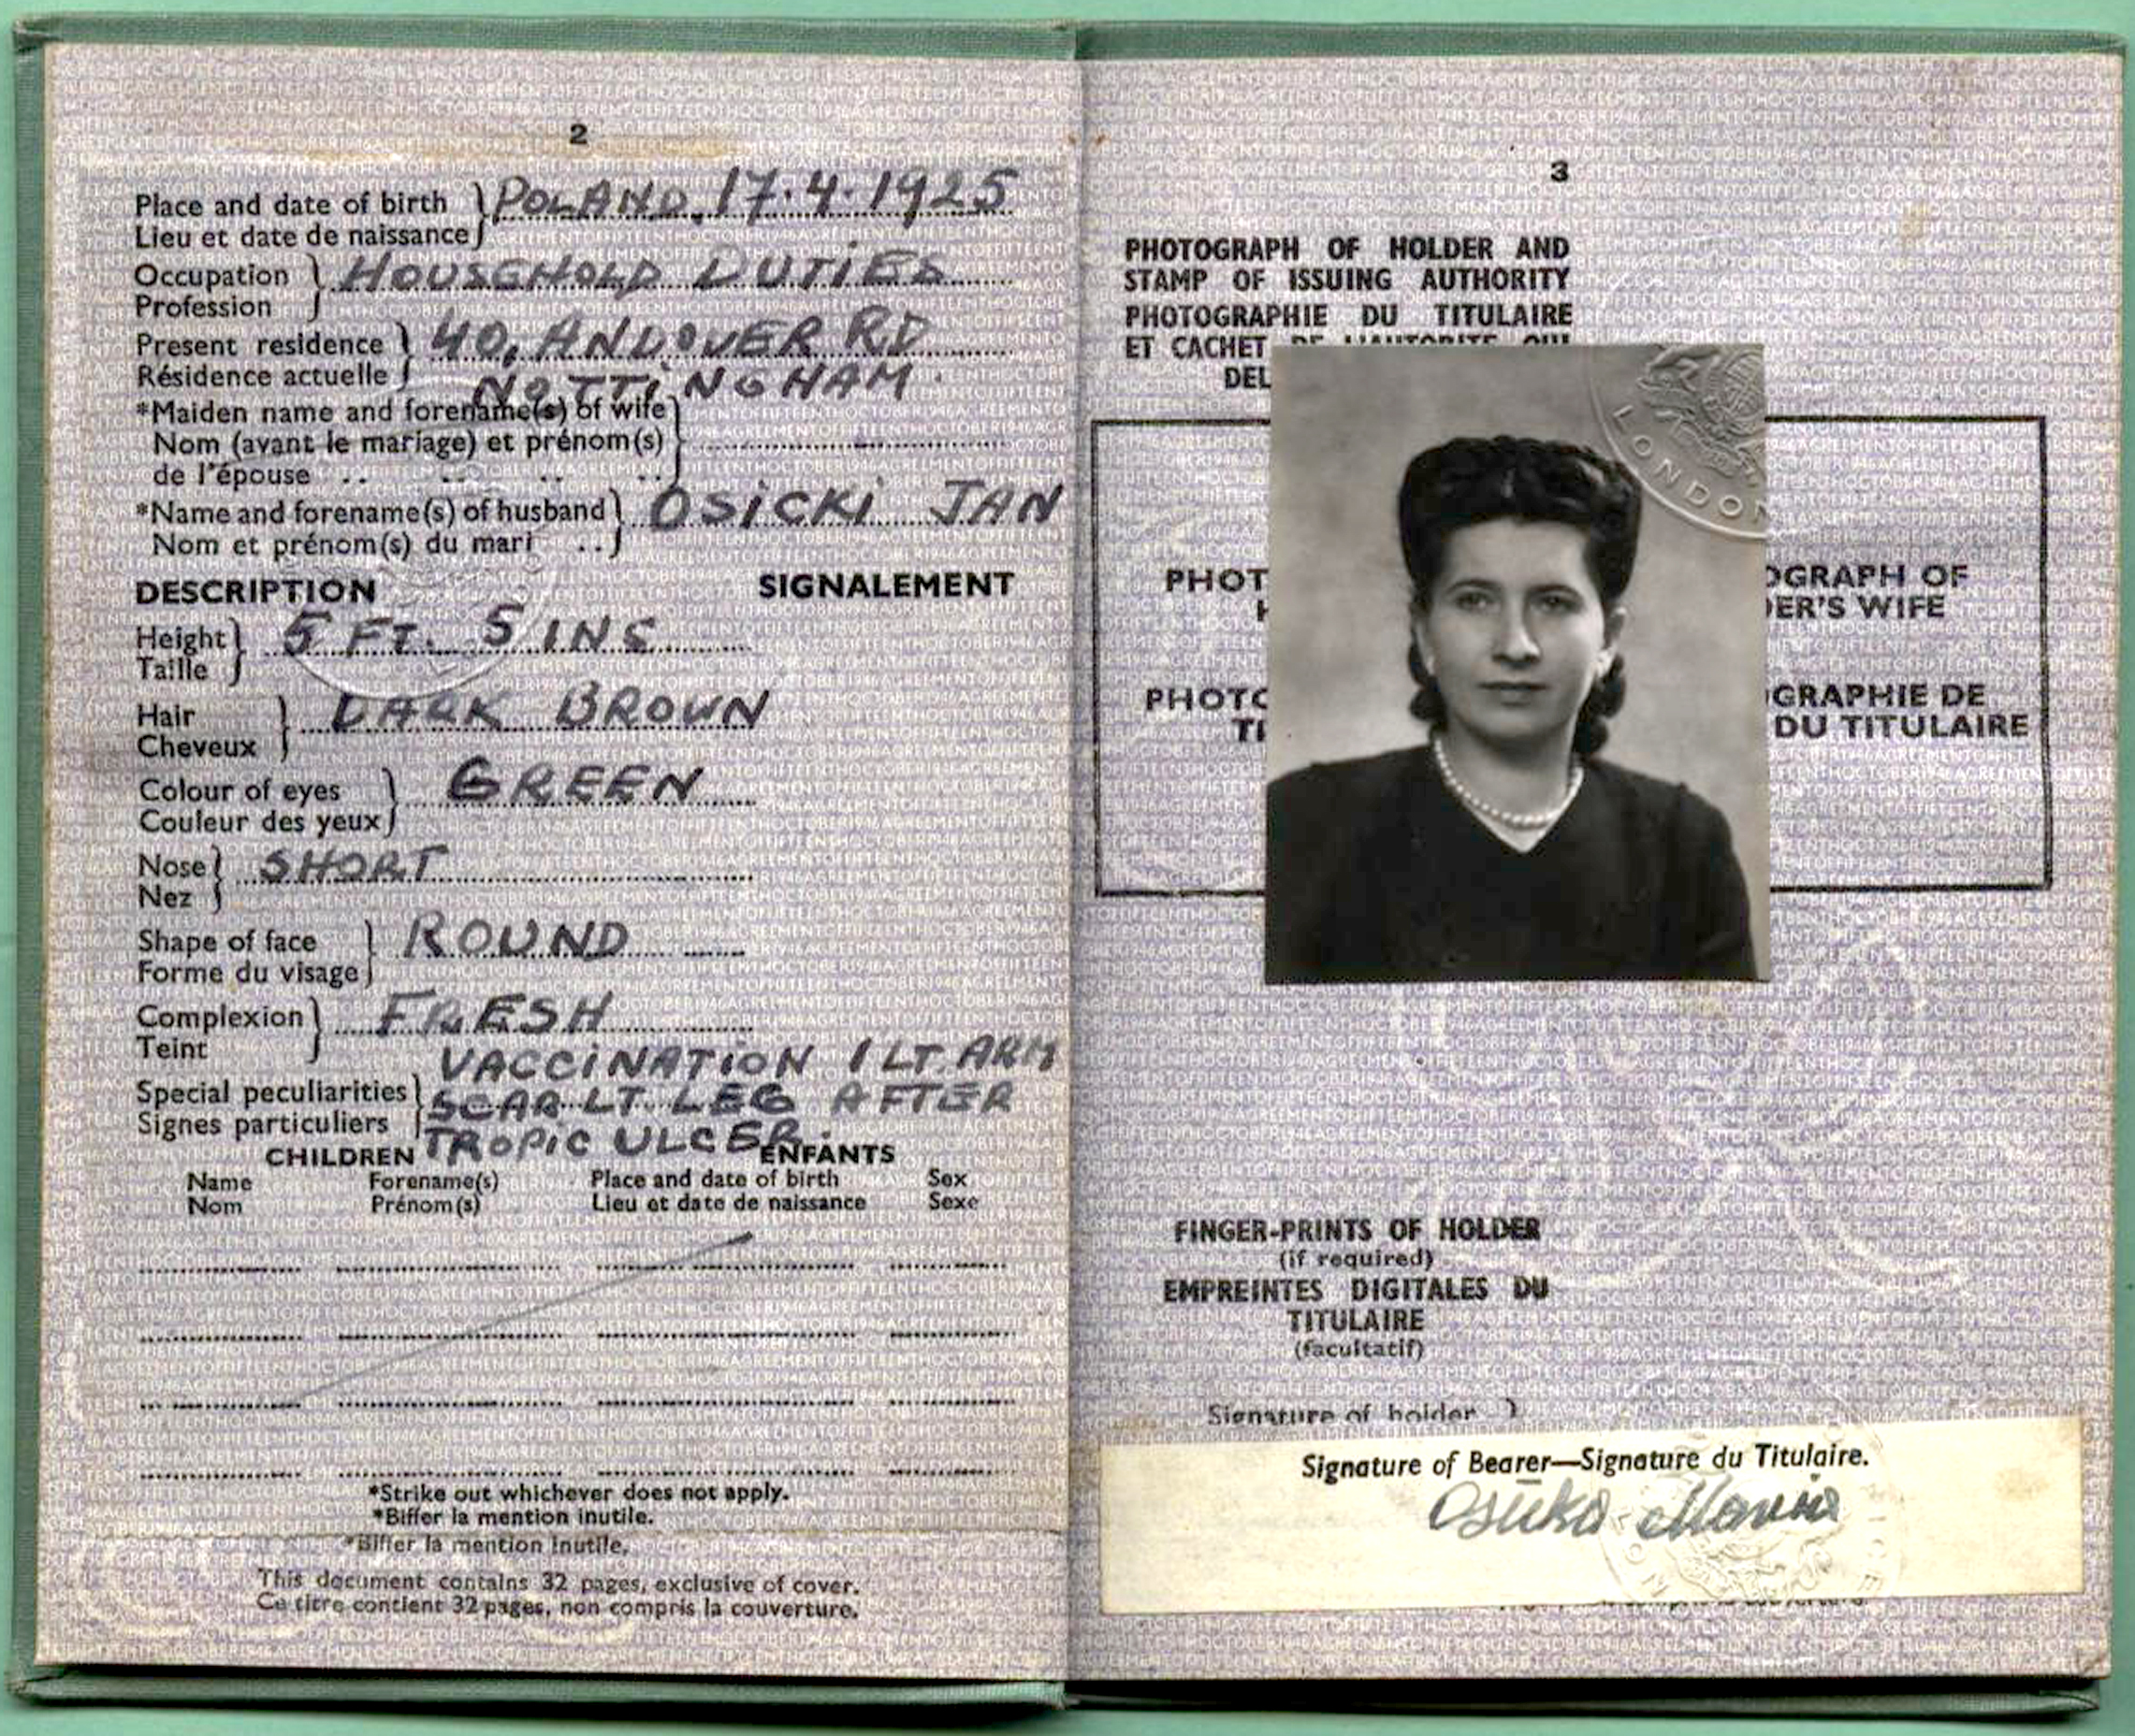 2
Place and date of birth } POLAND. 17.4.1925
Lieu et date de naissance
Occupation } HOUSEHOLD DUTIES
Profession
Present residence } 40, ANDOVER RD
Résidence actuelle NOTTINGHAM.
*Maiden name and forename(s) of wife
Nom (avant le mariage) et prénom(s)
de l'épouse .. .. .. ..
*Name and forename(s) of husband } OSICKI JAN
Nom et prénom(s) du mari ..
DESCRIPTION SIGNALEMENT
Height } 5 FT. 5 INS
Taille
Hair } DARK BROWN
Cheveux
Colour of eyes } GREEN
Couleur des yeux
Nose } SHORT
Nez
Shape of face } ROUND
Forme du visage
Complexion } FRESH
Teint
VACCINATION 1 LT. ARM
Special peculiarities } SCAR LT. LEG AFTER
Signes particuliers TROPIC ULCER.
CHILDREN ENFANTS
Name Forename(s) Place and date of birth Sex
Nom Prénom(s) Lieu et date de naissance Sexe
*Strike out whichever does not apply.
*Biffer la mention inutile.
*Biffer la mention inutile.
This document contains 32 pages, exclusive of cover.
Ce titre contient 32 pages, non compris la couverture.
3
PHOTOGRAPH OF HOLDER AND
STAMP OF ISSUING AUTHORITY
PHOTOGRAPHIE DU TITULAIRE
ET CACHET DE L'AUTORITE QUI
DEL
LONDON
PHOT OGRAPH OF
H DER'S WIFE
PHOTO GRAPHIE DE
TI DU TITULAIRE
FINGER-PRINTS OF HOLDER
(if required)
EMPREINTES DIGITALES DU
TITULAIRE
(facultatif)
Signature of holder
Signature of Bearer—Signature du Titulaire.
Osicka Maria